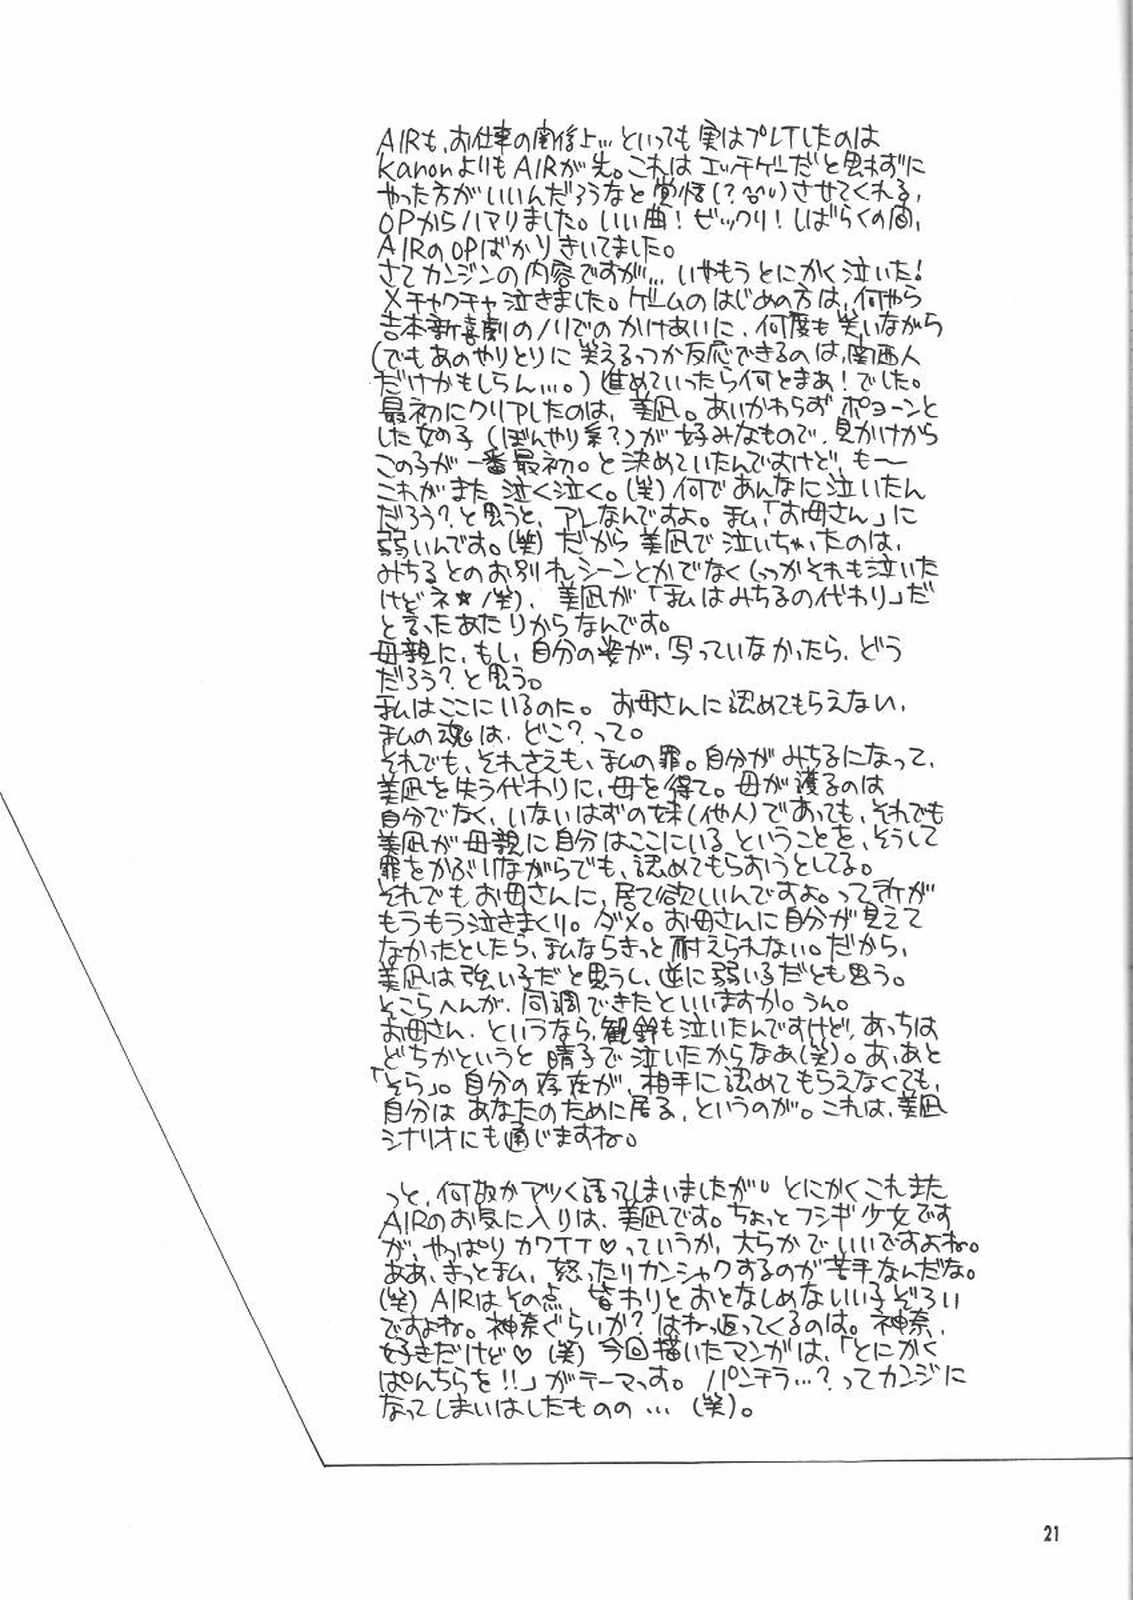 AIRも、お仕事の関係上…といっても実はプレイしたのは
KanonよりもAIRが先。これはエッチゲーだと思わずに
やった方がいいんだろうなと覚悟(?^^;)させてくれる、
OPからハマリました。いい曲!ビックリ!しばらくの間、
AIRのOPばかりきいてました。
さてカンジンの内容ですが…いやもうとにかく泣いた!
メチャクチャ泣きました。ゲームのはじめの方は、何やら
吉本新喜劇のノリでのかけあいに、何度も笑いながら
(でもあのやりとりに笑えるっつか反応できるのは、関西人
だけかもしらん…。)進めていったら何とまあ!でした。
最初にクリアしたのは、美凪。あいかわらずポヨーンと
した女の子(ぼんやり系?)が好みなもので、見かけから
この子が一番最初。と決めていたんですけど、も〜
これがまた泣く泣く。(笑)何であんなに泣いたん
だろう?と思うと、アレなんですよ。私、「お母さん」に
弱いんです。(笑)だから美凪で泣いちゃったのは、
みちるとのお別れシーンとかでなく(っつかそれも泣いた
けどネ★/笑)、美凪が「私はみちるの代わり」だ
と言ったあたりからなんです。
母親に、もし、自分の姿が、写っていなかったら、どう
だろう?と思う。
私はここにいるのに。お母さんに認めてもらえない、
私の魂は、どこ?って。
それでも、それさえも、私の罪。自分がみちるになって、
美凪を失う代わりに、母を得て。母が護るのは
自分でなく、いないはずの妹(他人)であっても、それでも
美凪が母親に自分はここにいるということを、そうして
罪をかぶりながらでも、認めてもらおうとしてる。
それでもお母さんに、居て欲しいんですよ。って所が
もうもう泣きまくり。ダメ。お母さんに自分が見えて
なかったとしたら、私ならきっと耐えられない。だから、
美凪は強い子だと思うし、逆に弱い子だとも思う。
そこらへんが、同調できたといいますか。うん。
お母さん、というなら、観鈴も泣いたんですけど、あっちは
どちかというと晴子で泣いたからなあ(笑)。あ、あと
「そら」。自分の存在が、相手に認めてもらえなくても、
自分はあなたのために居る、というのが。これは、美凪
シナリオにも通じますね。
っと、何故かアツく語ってしまいましたが。とにかくこれまた
AIRのお気に入りは、美凪です。ちょっとフシギ少女です
が、やっぱりカワイイ♡っていうか、大らかでいいですよね。
ああ、きっと私、怒ったりカンシャクするのが苦手なんだな。
(笑)AIRはその点、皆わりとおとなしめないい子ぞろい
ですよね。神奈ぐらいか?はねっ返ってくるのは。神奈、
好きだけど♡(笑)今回描いたマンガは、「とにかく
ぱんちらを!!」がテーマっす。パンチラ…?ってカンジに
なってしまいはしたものの…(笑)。
21